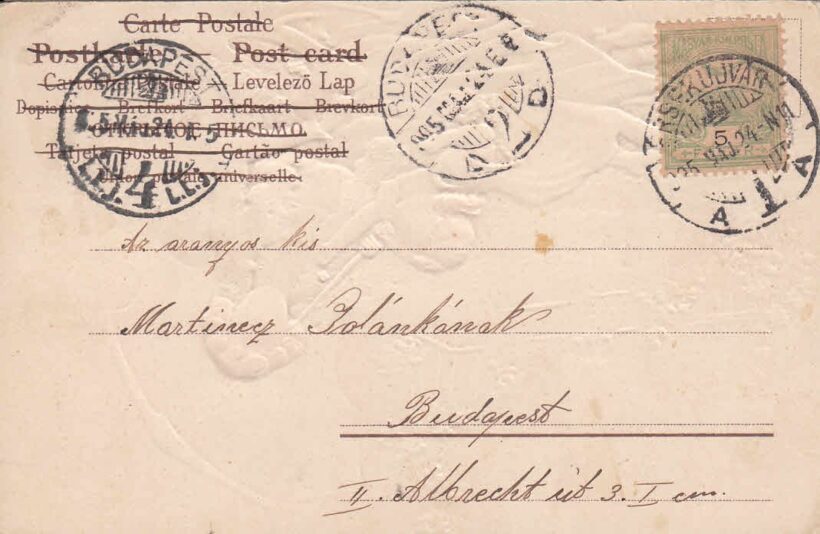 Carte Postale
Postkarte Post card
Carto Postale Levelező Lap
Dopisnice Brefkort Briefkaart Brevkort
ОТКРЫТОЕ ПИСЬМО
Tarjeta postal Cartão postal
Union postale universelle.
BUDAPEST
4
BUDAPEST
905 MÁJ. 24
D
ÉRSEKUJVÁR
905 MÁJ 24
A A
5
Az aranyos kis
Martinecz Iolánkának
Budapest
II. Albrecht út 3. I em.